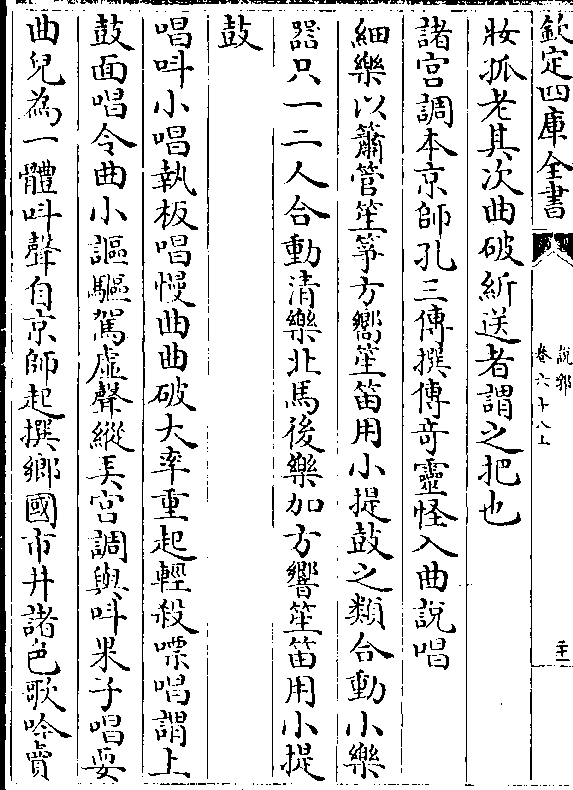 欽定四庫全書
說郛
卷六十八上
妝孤老其次曲破𣂏送者謂之把也
諸宮調本京師孔三傳撰傳奇靈怪入曲說唱
細樂以簫管笙䇓方嚮笙笛用小提鼓之類合動小樂
器只一二人合動清樂北馬後樂加方響笙笛用小提
鼓
唱呌小唱執板唱慢曲曲破大率重起輕殺嘌唱謂上
鼓面唱令曲小謳驅駕虛聲縱弄宮調與呌果子唱耍
曲兒為一體呌聲自京師起撰鄉國市井諸色歌吟賣